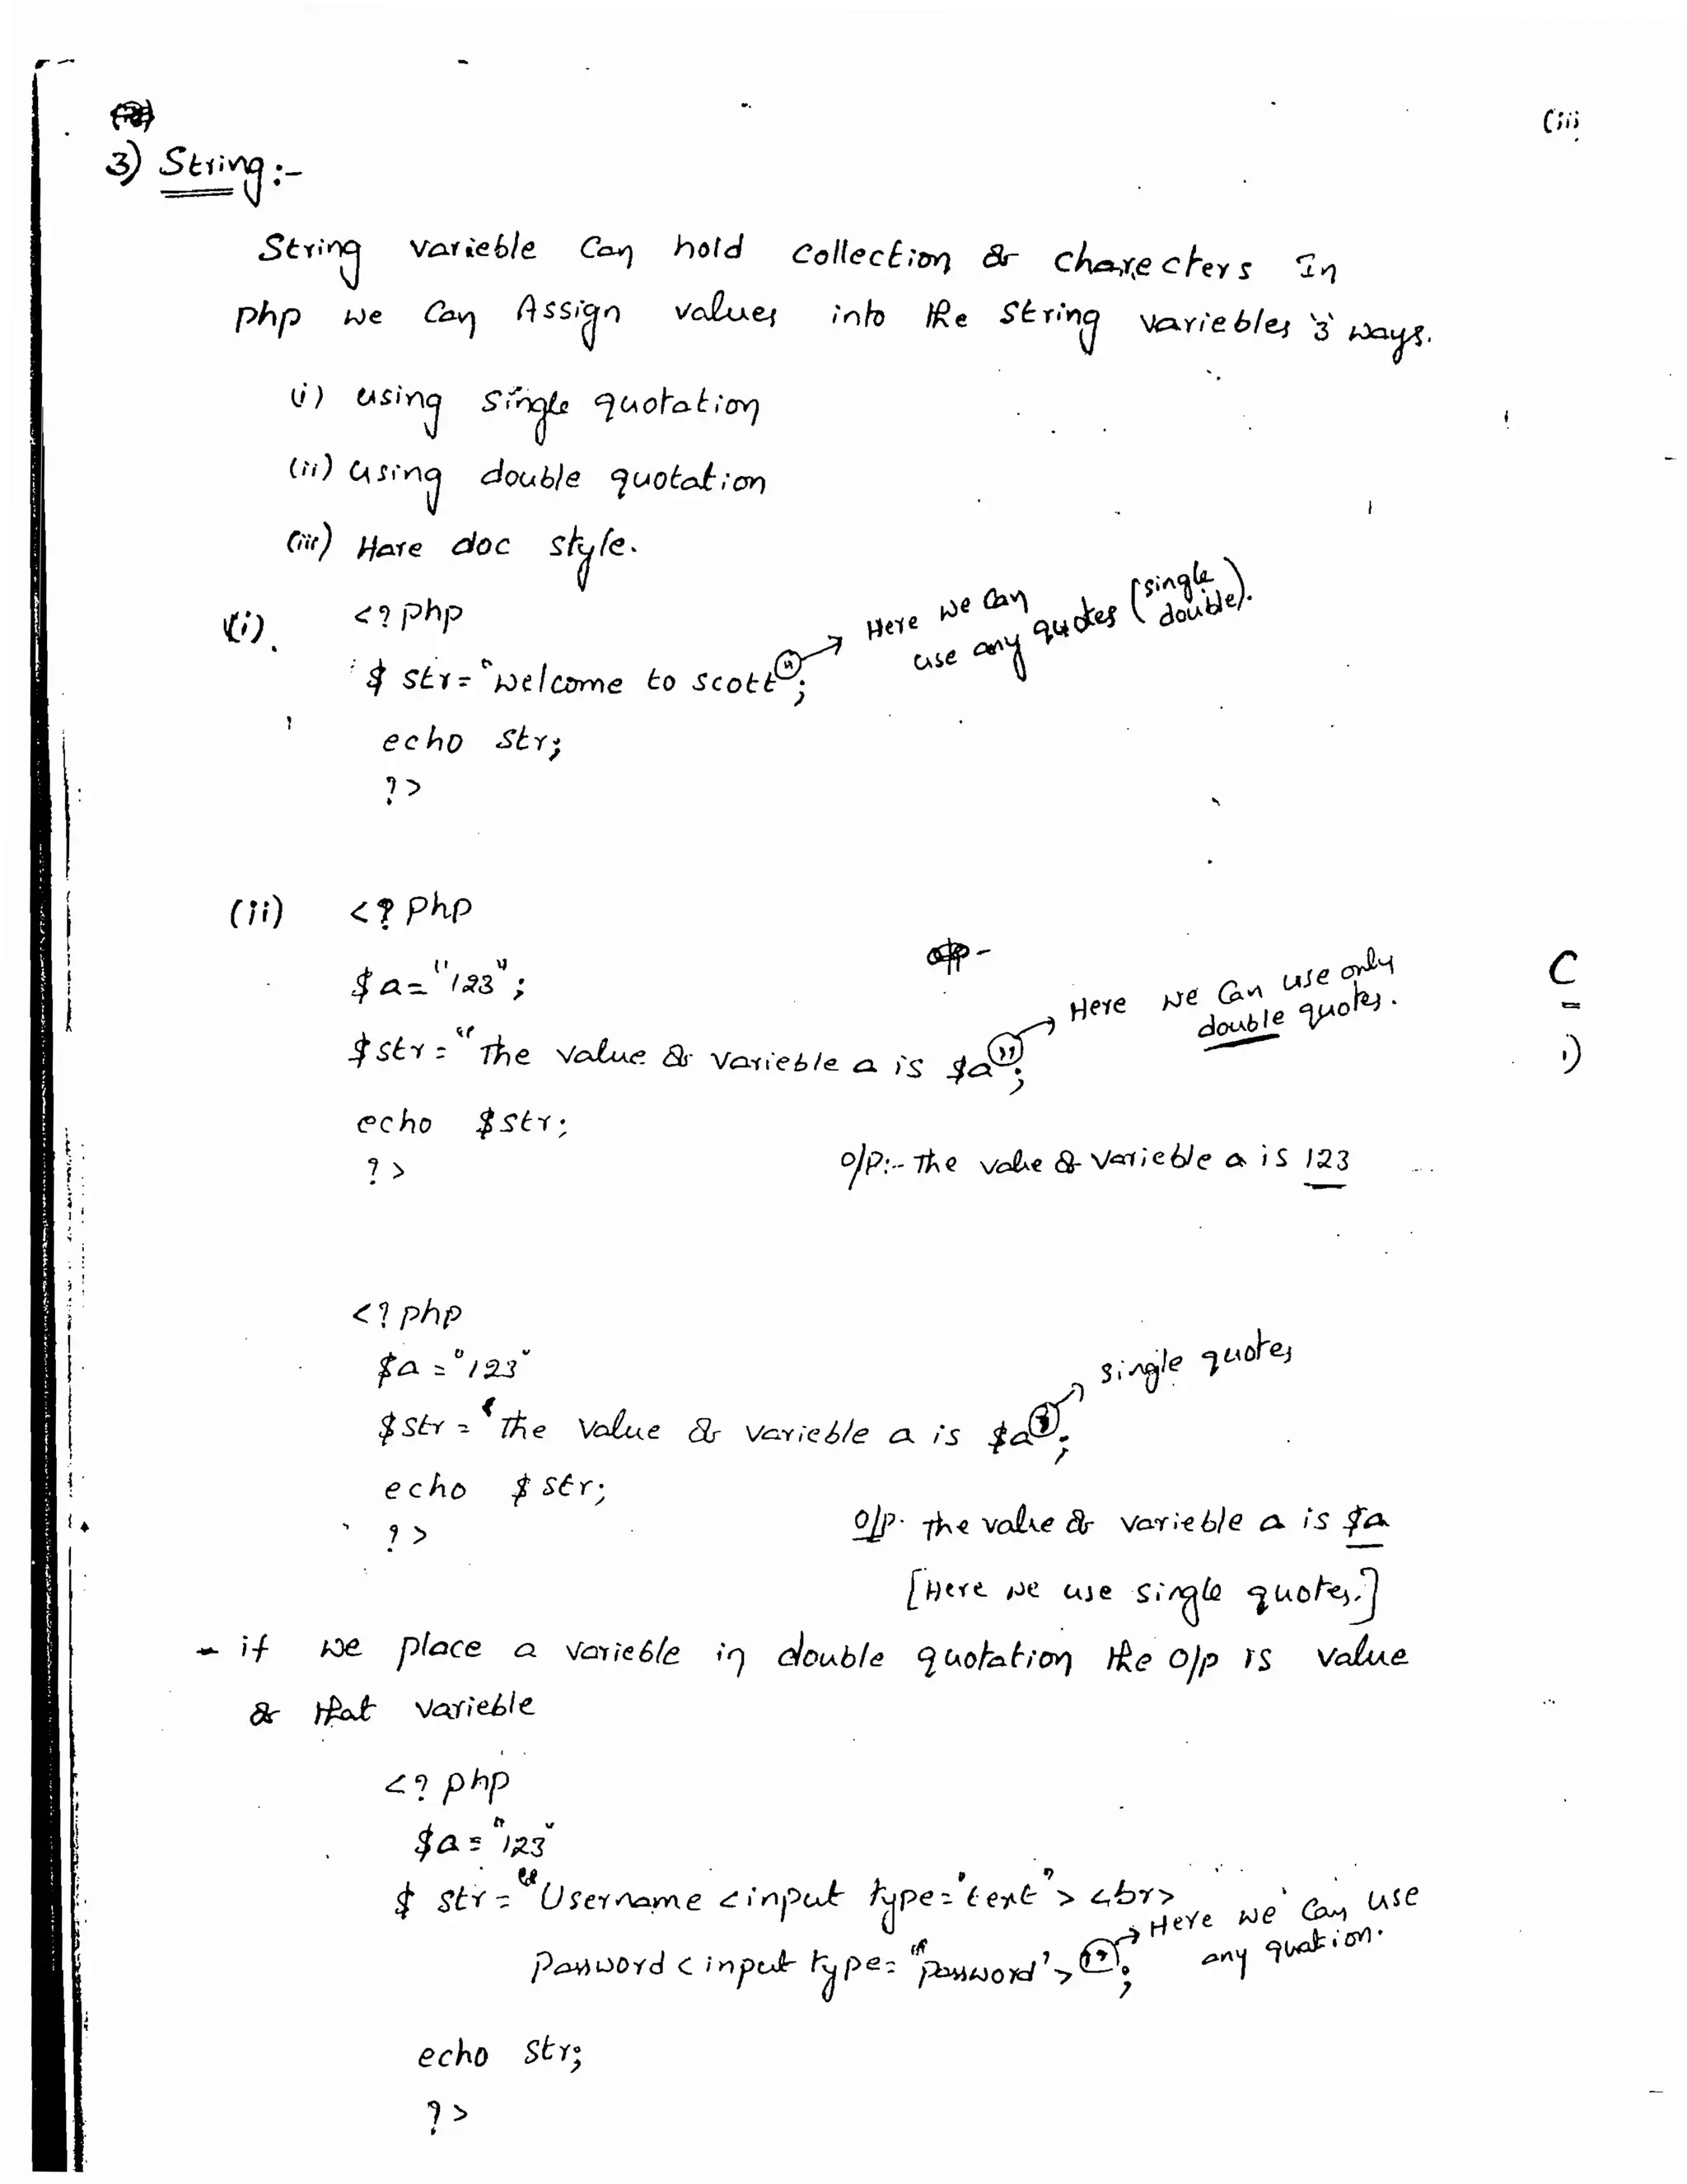 (iii
3) String:-
String varieble Can hold collection & charecters In
php we Can Assign values into the String variebles '3' ways.
(i) using single quotation
(ii) using double quotation
(iii) Hare doc style.
(i). <? php
Here we Can
use any quotes (single
double).
$ str = "welcome to scott";
echo str;
?>
(ii) <? php
$a = "123";
Here we Can use only
double quotes.
C
$str = "The value & varieble a is $a";
i)
echo $str;
?>
o/p:- The value & varieble a is 123
<? php
$a = "123"
single quotes
$str = 'The value & varieble a is $a';
echo $str;
?>
o/p. The value & varieble a is $a
[Here we use single quotes.]
- if we place a varieble in double quotation the o/p is value
& that varieble
<? php
$a = "123"
$ str = "Username <input type='text'> <br>
Password <input type='password'>";
Here we Can use
any quation.
echo str;
?>